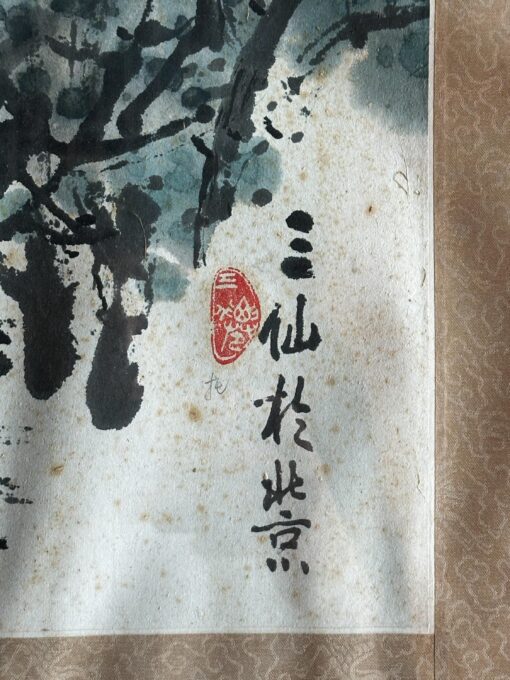 三仙於北京